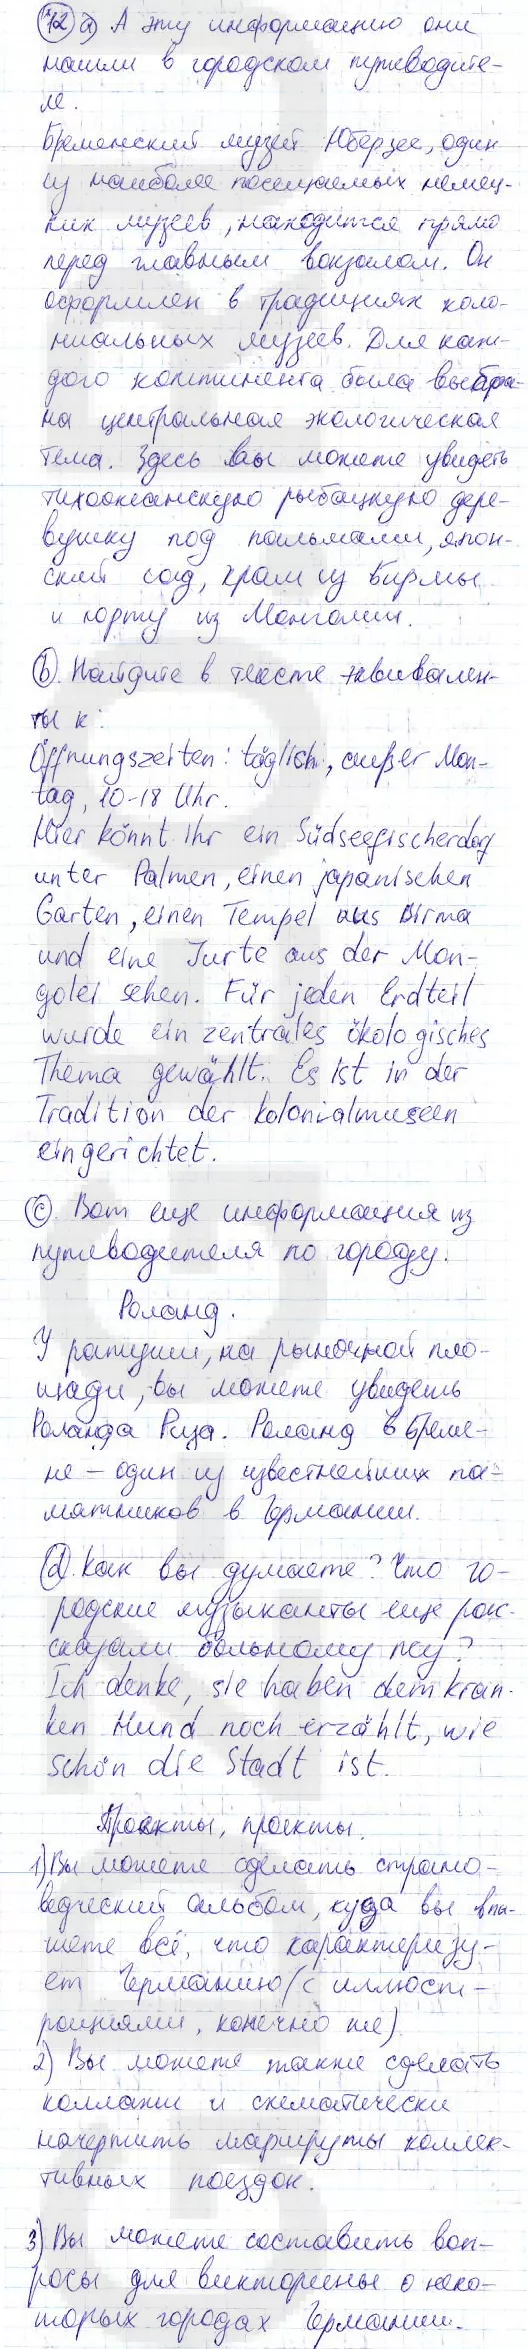 12 a) А эту информацию они
нашли в городском путеводите-
ле.
Бременский музей Юберзее, один
из наиболее посещаемых немец-
ких музеев, находится прямо
перед главным вокзалом. Он
оформлен в традициях коло-
ниальных музеев. Для каж-
дого континента была выбра-
на центральная экологическая
тема. Здесь вы можете увидеть
тихоокеанскую рыбацкую дере-
вушку под пальмами, япон-
ский сад, храм из Бирмы
и юрту из Монголии.
b). Найдите в тексте эквивален-
ты к:
Öffnungszeiten: täglich, außer Mon-
tag, 10-18 Uhr.
Hier könnt ihr ein Südseefischerdorf
unter Palmen, einen japanischen
Garten, einen Tempel aus Birma
und eine Jurte aus der Mon-
golei sehen. Für jeden Erdteil
wurde ein zentrales ökologisches
Thema gewählt. Es ist in der
Tradition der Kolonialmuseen
eingerichtet.
c). Вот еще информация из
путеводителя по городу.
Роланд.
У ратуши, на рыночной пло-
щади, вы можете увидеть
Роланда Риза. Роланд в Бреме-
не – один из известнейших па-
мятников в Германии.
d). Как вы думаете? Что го-
родские музыканты еще рас-
сказали больному псу?
Ich denke, sie haben dem kran-
ken Hund noch erzählt, wie
schön die Stadt ist.
Проекты, проекты.
1) Вы можете сделать страно-
ведческий альбом, куда вы впи-
шете всё, что характеризу-
ет Германию (с иллюст-
рациями, конечно же)
2) Вы можете также сделать
коллажи и схематически
начертить маршруты коллек-
тивных поездок.
3) Вы можете составить воп-
росы для викторины о неко-
торых городах Германии.
GDZGEO.RU